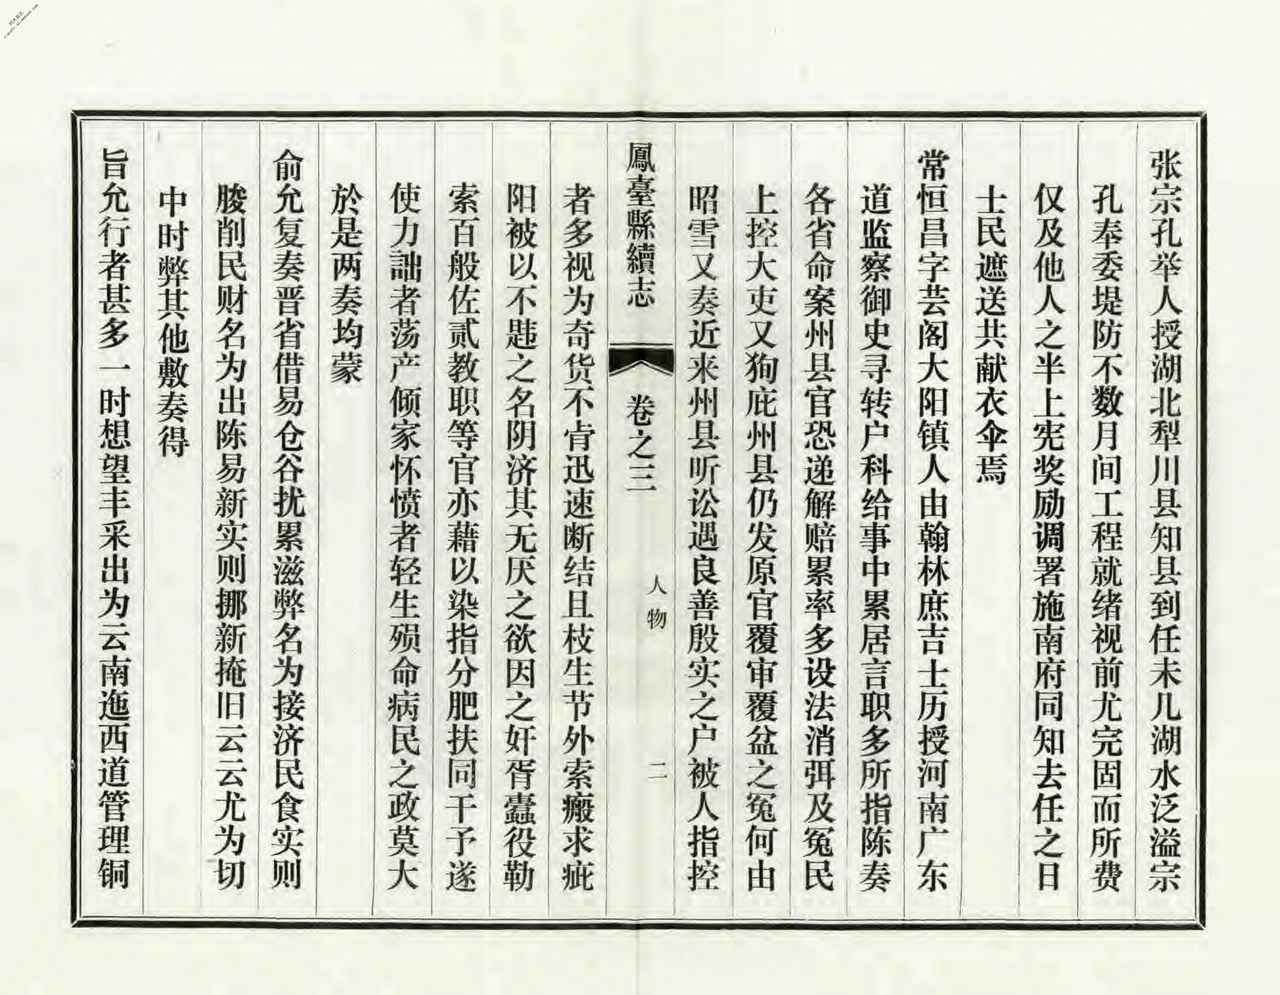 张宗孔举人授湖北犁川县知县到任未几湖水泛溢宗
孔奉委堤防不数月间工程就绪视前尤完固而所费
仅及他人之半上宪奖励调署施南府同知去任之日
士民遮送共献衣伞焉
常恒昌字芸阁大阳镇人由翰林庶吉士历授河南广东
道监察御史寻转户科给事中累居言职多所指陈奏
各省命案州县官恐递解赔累率多设法消弭及冤民
上控大吏又狥庇州县仍发原官覆审覆盆之冤何由
昭雪又奏近来州县听讼遇良善殷实之户被人指控
鳳臺縣續志
卷之三
人物
二
者多视为奇货不肯迅速断结且枝生节外索瘢求疵
阳被以不韪之名阴济其无厌之欲因之奸胥蠹役勒
索百般佐贰教职等官亦藉以染指分肥扶同干予遂
使力诎者荡产倾家怀愤者轻生殒命病民之政莫大
於是两奏均蒙
俞允复奏晋省借易仓谷扰累滋弊名为接济民食实则
朘削民财名为出陈易新实则挪新掩旧云云尤为切
中时弊其他敷奏得
旨允行者甚多一时想望丰采出为云南迤西道管理铜